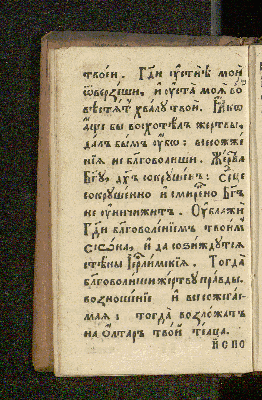 твоеи . Гди оустнѣ мои
ѿверзеши, и оуста моѧ во
звѣстѧтъ хвалу твою . Ꙗкѡ
аще бы восхотѣлъ жертвы,
далъ быхъ оубѡ : всесожже
нїѧ не бл҃говолиши . Жертва
Бг҃у, дх҃ъ сокрушенъ : Срце
сокрушенно и смиренно Бг҃ъ
не оуничижитъ . Оублажи
Гди бл҃говоленїемъ твоимъ
Сїѡна, и да созиждутсѧ
стѣны Іерл҃имскїѧ . Тогда
бл҃говолиши жертву правды.
возношенїе и всесожегае
маѧ : тогда возложатъ
на олтарь твои телца .
Испо